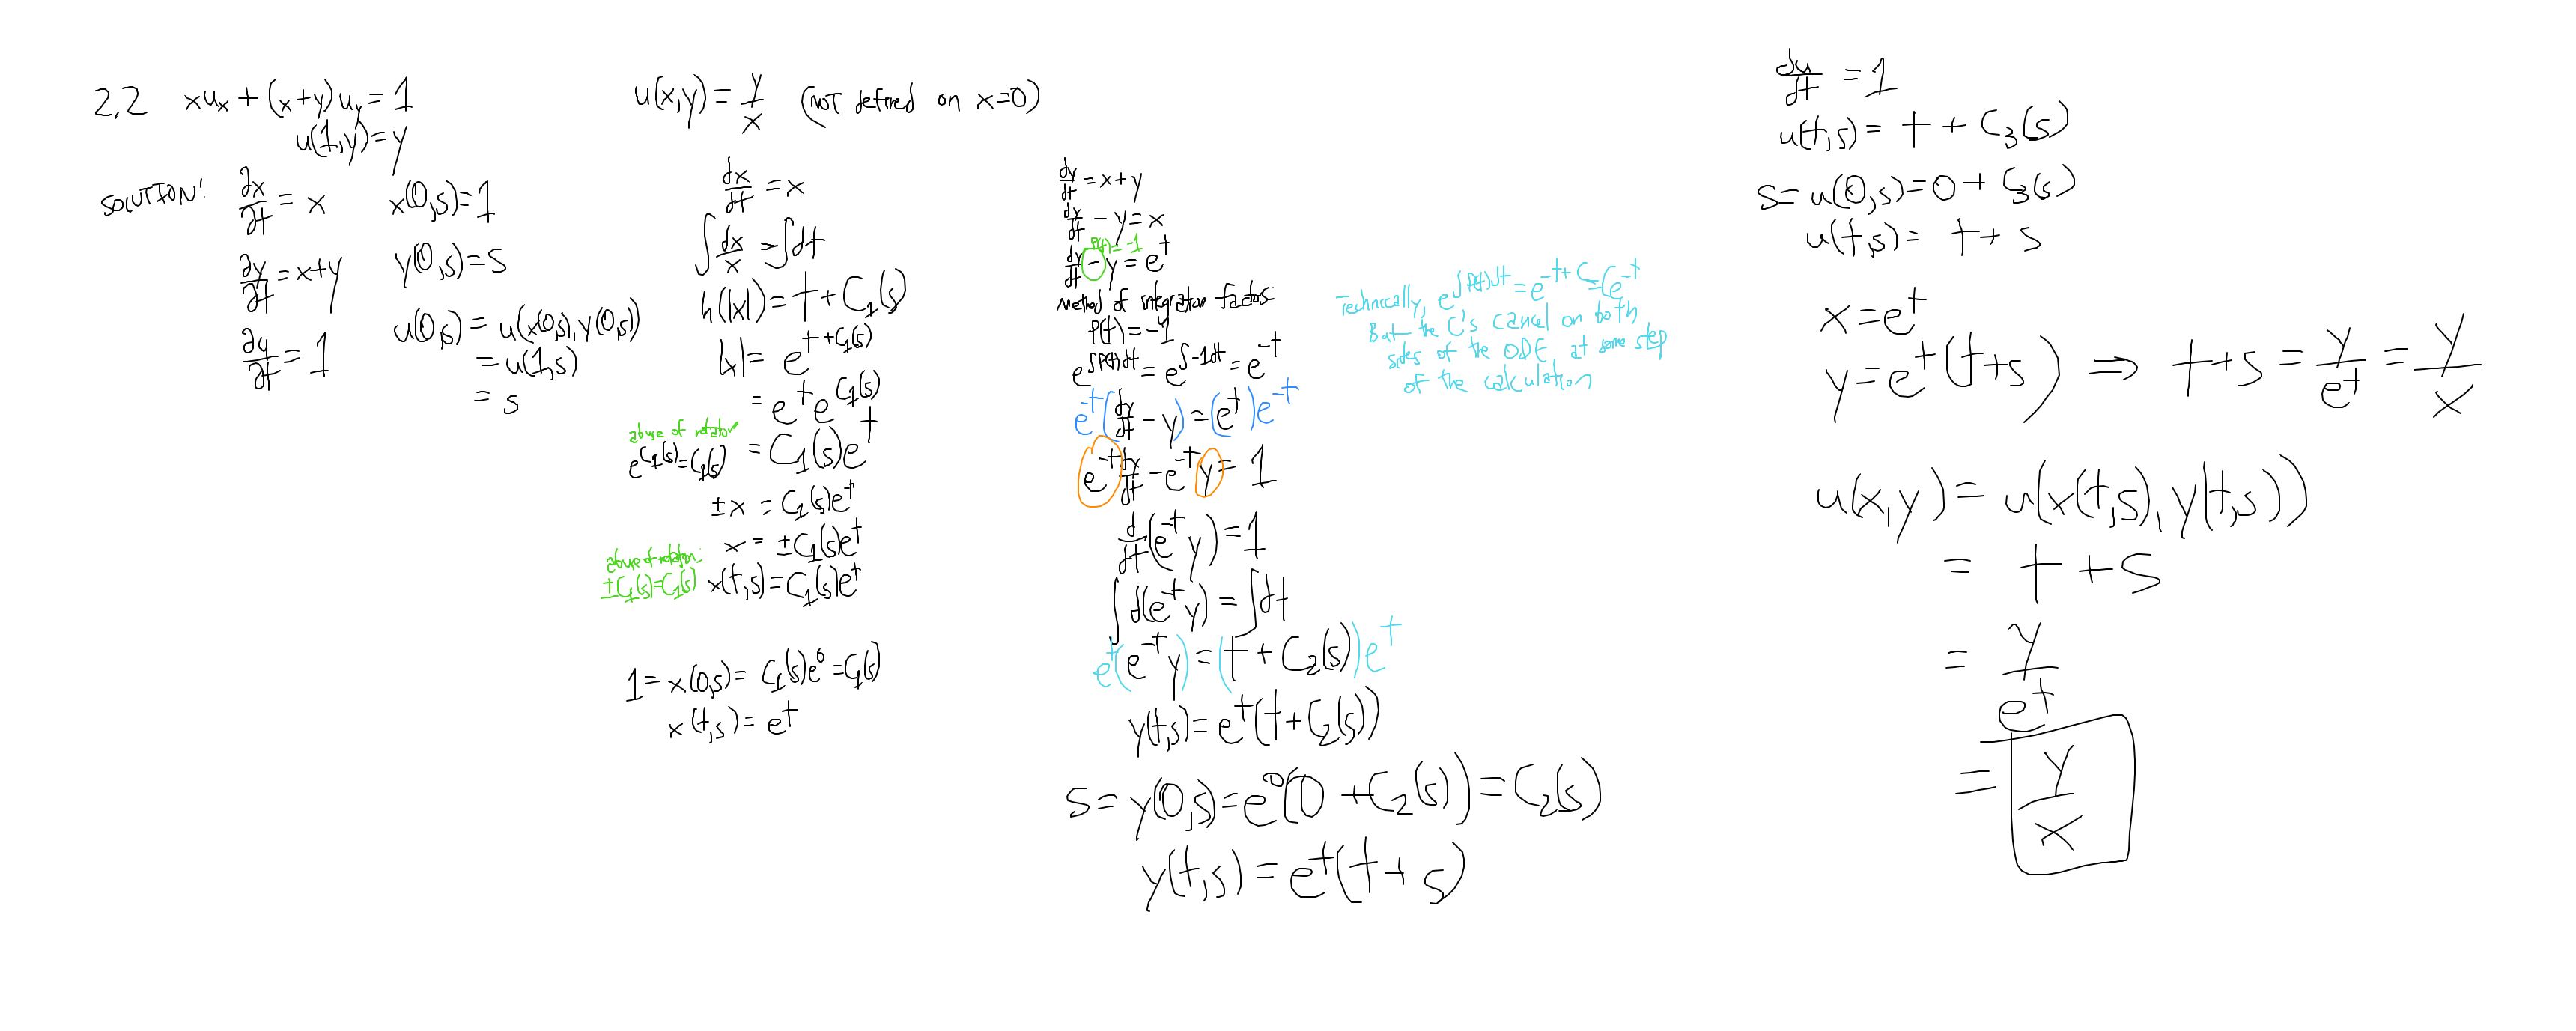 2.2 xu_x + (x+y)u_y = 1
u(1,y) = y
SOLUTION:
∂x/∂t = x x(0,s) = 1
∂y/∂t = x+y y(0,s) = s
∂u/∂t = 1 u(0,s) = u(x(0,s), y(0,s))
= u(1,s)
= s
u(x,y) = y/x (not defined on x=0)
dx/dt = x
∫ dx/x = ∫ dt
ln(|x|) = t + C₁(s)
|x| = e^(t+C₁(s))
= e^t e^(C₁(s))
abuse of notation
e^(C₁(s)) = C₁(s)
= C₁(s)e^t
±x = C₁(s)e^t
x = ±C₁(s)e^t
abuse of notation:
±C₁(s) = C₁(s)
x(t,s) = C₁(s)e^t
1 = x(0,s) = C₁(s)e^0 = C₁(s)
x(t,s) = e^t
dy/dt = x+y
dx/dt - y = x
P(t) = -1
dy/dt - y = e^t
Method of integration factors:
P(t) = -1
e^(∫P(t)dt) = e^(∫-1dt) = e^(-t)
e^(-t)(dy/dt - y) = (e^t)e^(-t)
e^(-t) dx/dt - e^(-t)y = 1
d/dt(e^(-t)y) = 1
∫ d(e^(-t)y) = ∫ dt
e^t(e^(-t)y) = (t + C₂(s))e^t
y(t,s) = e^t(t+C₂(s))
s = y(0,s) = e^0(0 + C₂(s)) = C₂(s)
y(t,s) = e^t(t+s)
Technically, e^(∫P(t)dt) = e^(-t+C) = Ce^(-t)
But the C's cancel on both
sides of the ODE at some step
of the calculation
du/dt = 1
u(t,s) = t + C₃(s)
s = u(0,s) = 0 + C₃(s)
u(t,s) = t + s
x = e^t
y = e^t(t+s) ⇒ t+s = y/e^t = y/x
u(x,y) = u(x(t,s), y(t,s))
= t + s
= y/e^t
= y/x